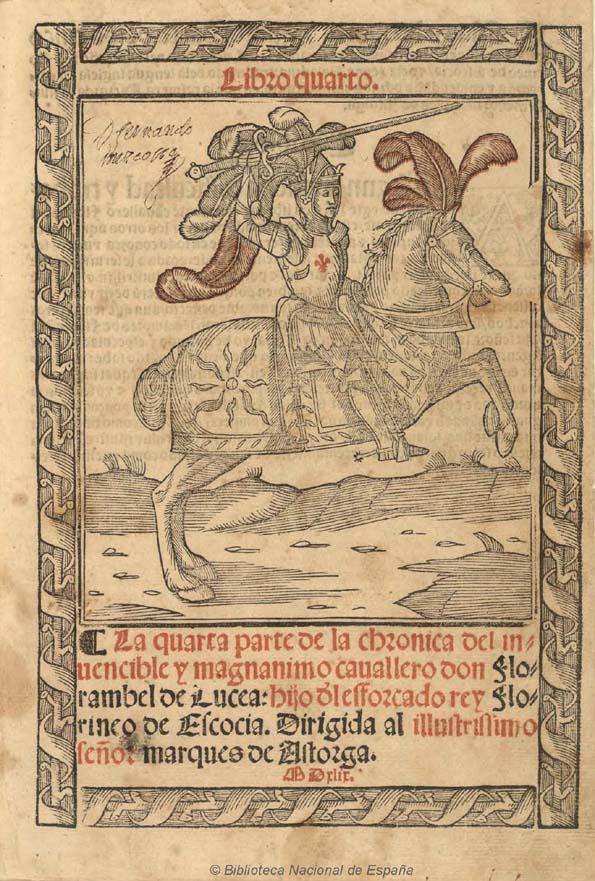 Libro quarto.
D fernando
La quarta parte de la chronica del in⸗
uencible y magnanimo cauallero don Flo⸗
rambel de Lucea: hijo dl esforcado rey Flo⸗
rineo de Escocia. Dirigida al illustrissimo
señor marques de Astorga.
M Dxlix.
© Biblioteca Nacional de España